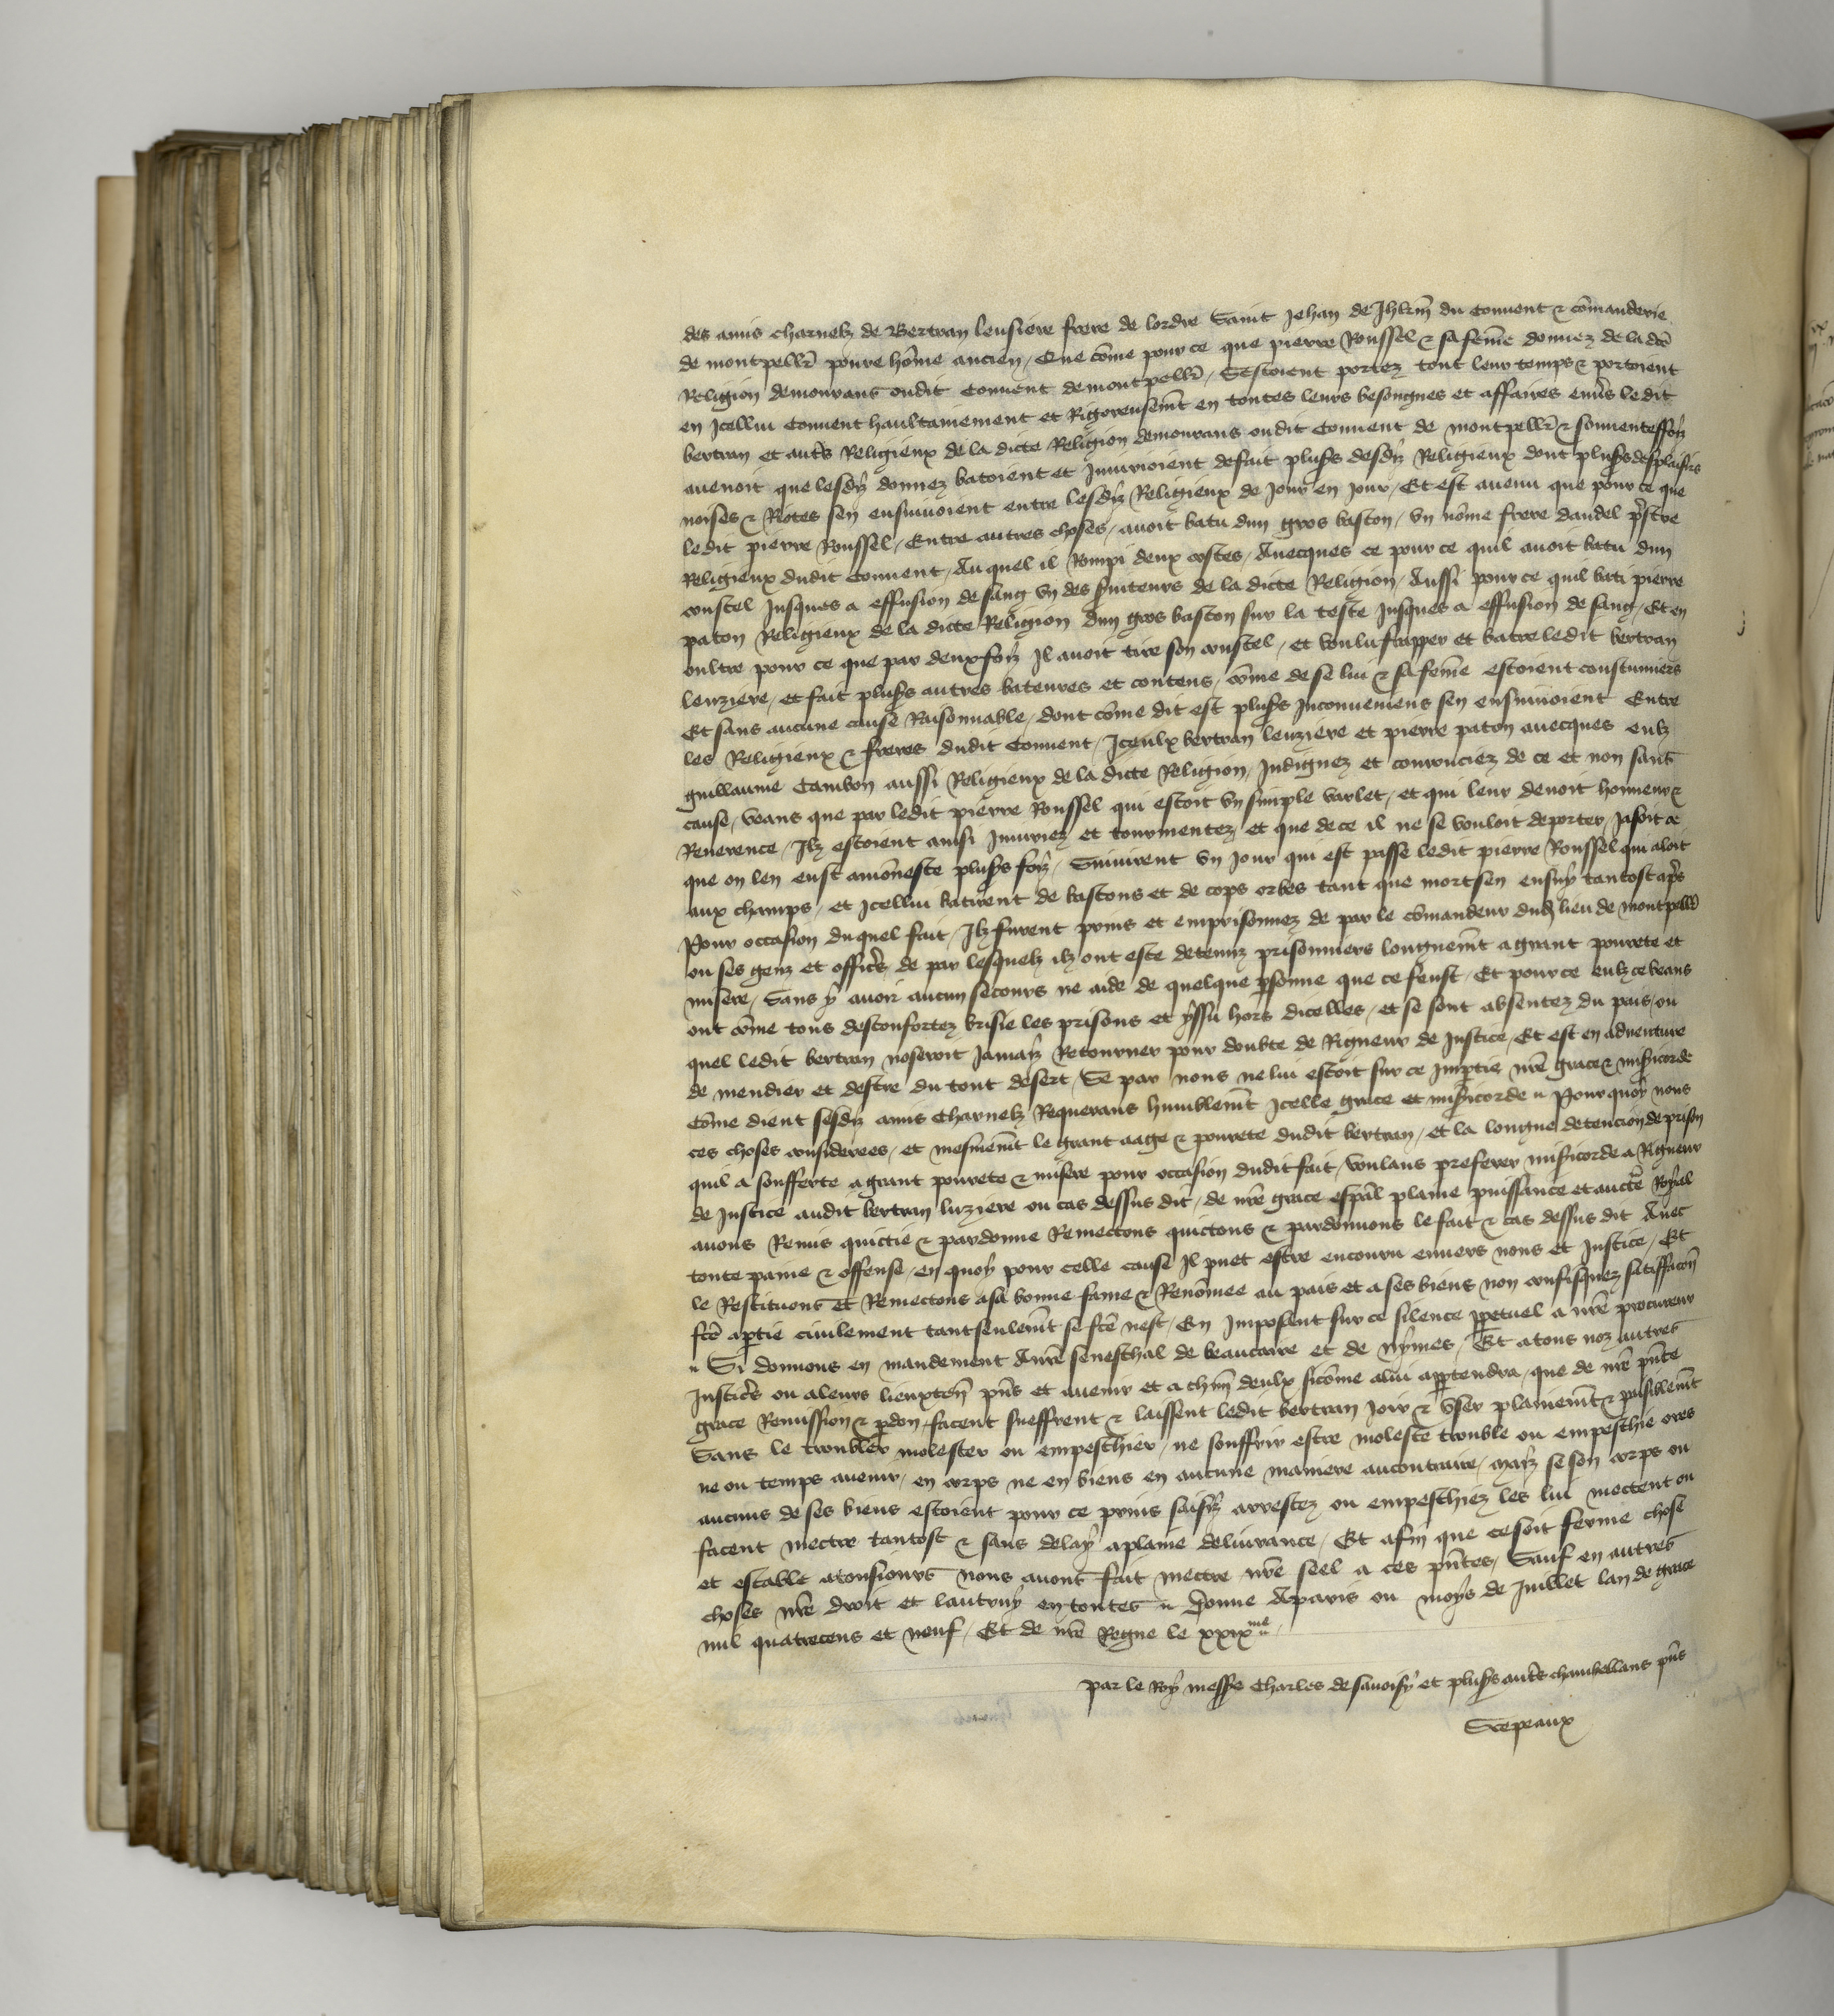 des amis charnelz de Bertran leusiere frere de lordre Saint Jehan de Jhrlm̄ du Conuent & cōmanderie
de montpellr̄ poure hōme ancien / Que cōme pour ce que pierre Roussel & sa fem̄e donnez de la dc̄e
Religion demourans oudit Conuent de montpellr̄ / Sestoient portez tout leur temps & portoient
en Icellui Conuent haultainement et Rigoreusem̄t en toutes leurs besongnes et affaires enuers ledit
bertran et aut̄s Religieux de la dicte Religion demourans oudit Conuent de montpellr̄ & souuenteffoiz
auenoit que lesdiz donnez batoient et Iniurioient de fait plus̄s desdiz Religieux dont plus̄s desplaisirs
noises & Riotes sen ensuiuoient entre lesdiz Religieux de Jour en Jour / Et est auenu que pour ce que
ledit pierre Roussel / Entre autres choses / auoit batu dun gros baston / vn nōme frere dandel pr̄stre
Religieux dudit Conuent / Au quel il Rompi deux costes / Auecques ce pour ce quil auoit batu dun
coustel Jusques a effusion de sang vn des seruiteurs de la dicte Religion / Aussi pour ce quil bati pierre
paton Religieux de la dicte Religion dun gros baston sur la teste Jusques a effusion de sang / Et en
oultre pour ce que par deux foiz Il auoit tire son coustel / et voulu frapper et batre ledit bertran
leuziere / et fait plus̄s autres bateures et contens / cōme de se lui & sa fem̄e estoient coustumiers
Et sans aucune cause Raisonnable / dont cōme dit est plus̄s Inconueniens sen ensuiuoient Entre
les Religieux & freres dudit Conuent / Iceulx bertran leuziere et pierre paton auecques eulz
guillaume Cambon aussi Religieux de la dicte Religion / Indignez et courouciez de ce et non sans
cause / veans que par ledit pierre Roussel qui estoit vn simple varlet / et qui leur deuoit honneur &
Reuerence / Ilz estoient ainsi Iniuriez et tourmentez / et que de ce il ne se vouloit deporter / Jasoit ce
que on len eust amōneste plus̄s foiz / Suiuirent vn Jour qui est passe ledit pierre Roussel qui aloit
aux champs / et Icellui batirent de bastons et de cops orbes tant que mort sen ensuy tantost apr̄s
Pour occasion du quel fait / Ilz furent prins et emprisonnez de par le cōmandeur dud̄ lieu de montpellr̄
ou ses genz et offic̄rs de par lesquelz ilz ont este detenuz prisonniers longuem̄t a grant pourete et
misere / Sans y auoir aucun secours ne aide de quelque p̄sonne que ce feust / Et pour ce eulz ce veans
ont cōme tous desconfortez brisie les prisons et yssu hors dicelles / et se sont absentez du pais / ou
quel ledit bertran noseroit Jamaiz Retourner pour doubte de Rigueur de Justice / Et est en aduenture
de mendier et destre du tout desert / Se par nous ne lui estoit sur ce Imp̄tie nr̄e grace & mis̄icorde
Cōme dient sesdiz amis Charnelz Requerans humblem̄t Icelle grace et mis̄icorde // Pour quoy nous
ces choses considerees / et mesmem̄t le grant aage & pourete dudit bertran / et la longue detencion de prison
quil a soufferte a grant pourete & misere pour occasion dudit fait / voulans preferer mis̄icorde a Rigueur
de Justice audit bertran luziere ou cas dessus dit / de nr̄e grace esp̄al plaine puissance et auct̄e Royal
auons Remis quictie & pardonne Remectons quictons & pardonnons le fait & cas dessus dit Auec
toute paine & offense / en quoy pour celle cause Il puet estre encouru enuers nous et Justice / Et
le Restituons et Remectons a sa bonne fame & Renōmee au pais et a ses biens non confisquez satiffacōn
fc̄e a p̄tie ciuilement tant seulem̄t se fc̄e nest / En Imposant sur ce silence p̄petuel a nr̄e procureur
// Si donnons en mandement A nr̄e seneschal de beaucaire et de Nymes / Et a tous noz autres
Justic̄rs ou a leurs lieuxten̄ p̄ns et auenir et a ch̄un deulx sicōme a lui app̄tendra / que de nr̄e p̄nte
grace Remission & p̄don / facent sueffrent & laissent ledit bertran Joir & vser plainem̄t & paisiblem̄t
Sans le troubler molester ou empeschier / ne souffrir estre moleste trouble ou empeschie ores
ne ou temps auenir / en corps ne en biens en aucune maniere au contraire / Maiz se son corps ou
aucuns de ses biens estoient pour ce prins saisiz arrestez ou empeschiez les lui mectent ou
facent mectre tantost & sans delay a plaine deliurance / Et afin que ce soit ferme chose
et estable a tousiours nous auons fait mectre nr̄e seel a ces p̄ntes / Sauf en autres
choses nr̄e droit et lautruy en toutes // Donne A paris ou moys de Juillet lan de grace
mil quatrecens et neuf / Et de nr̄e Regne le xxixme //
Par le Roy messe Charles de sauoisy et plus̄s aut̄s chambellans p̄ns
Scepeaux